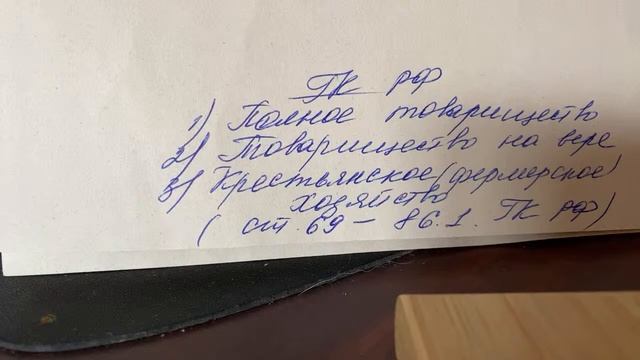 ГК РФ
1) Полное товарищество
2) Товарищество на вере
3) Крестьянское (фермерское)
хозяйство
(ст. 69 – 86.1. ГК РФ)